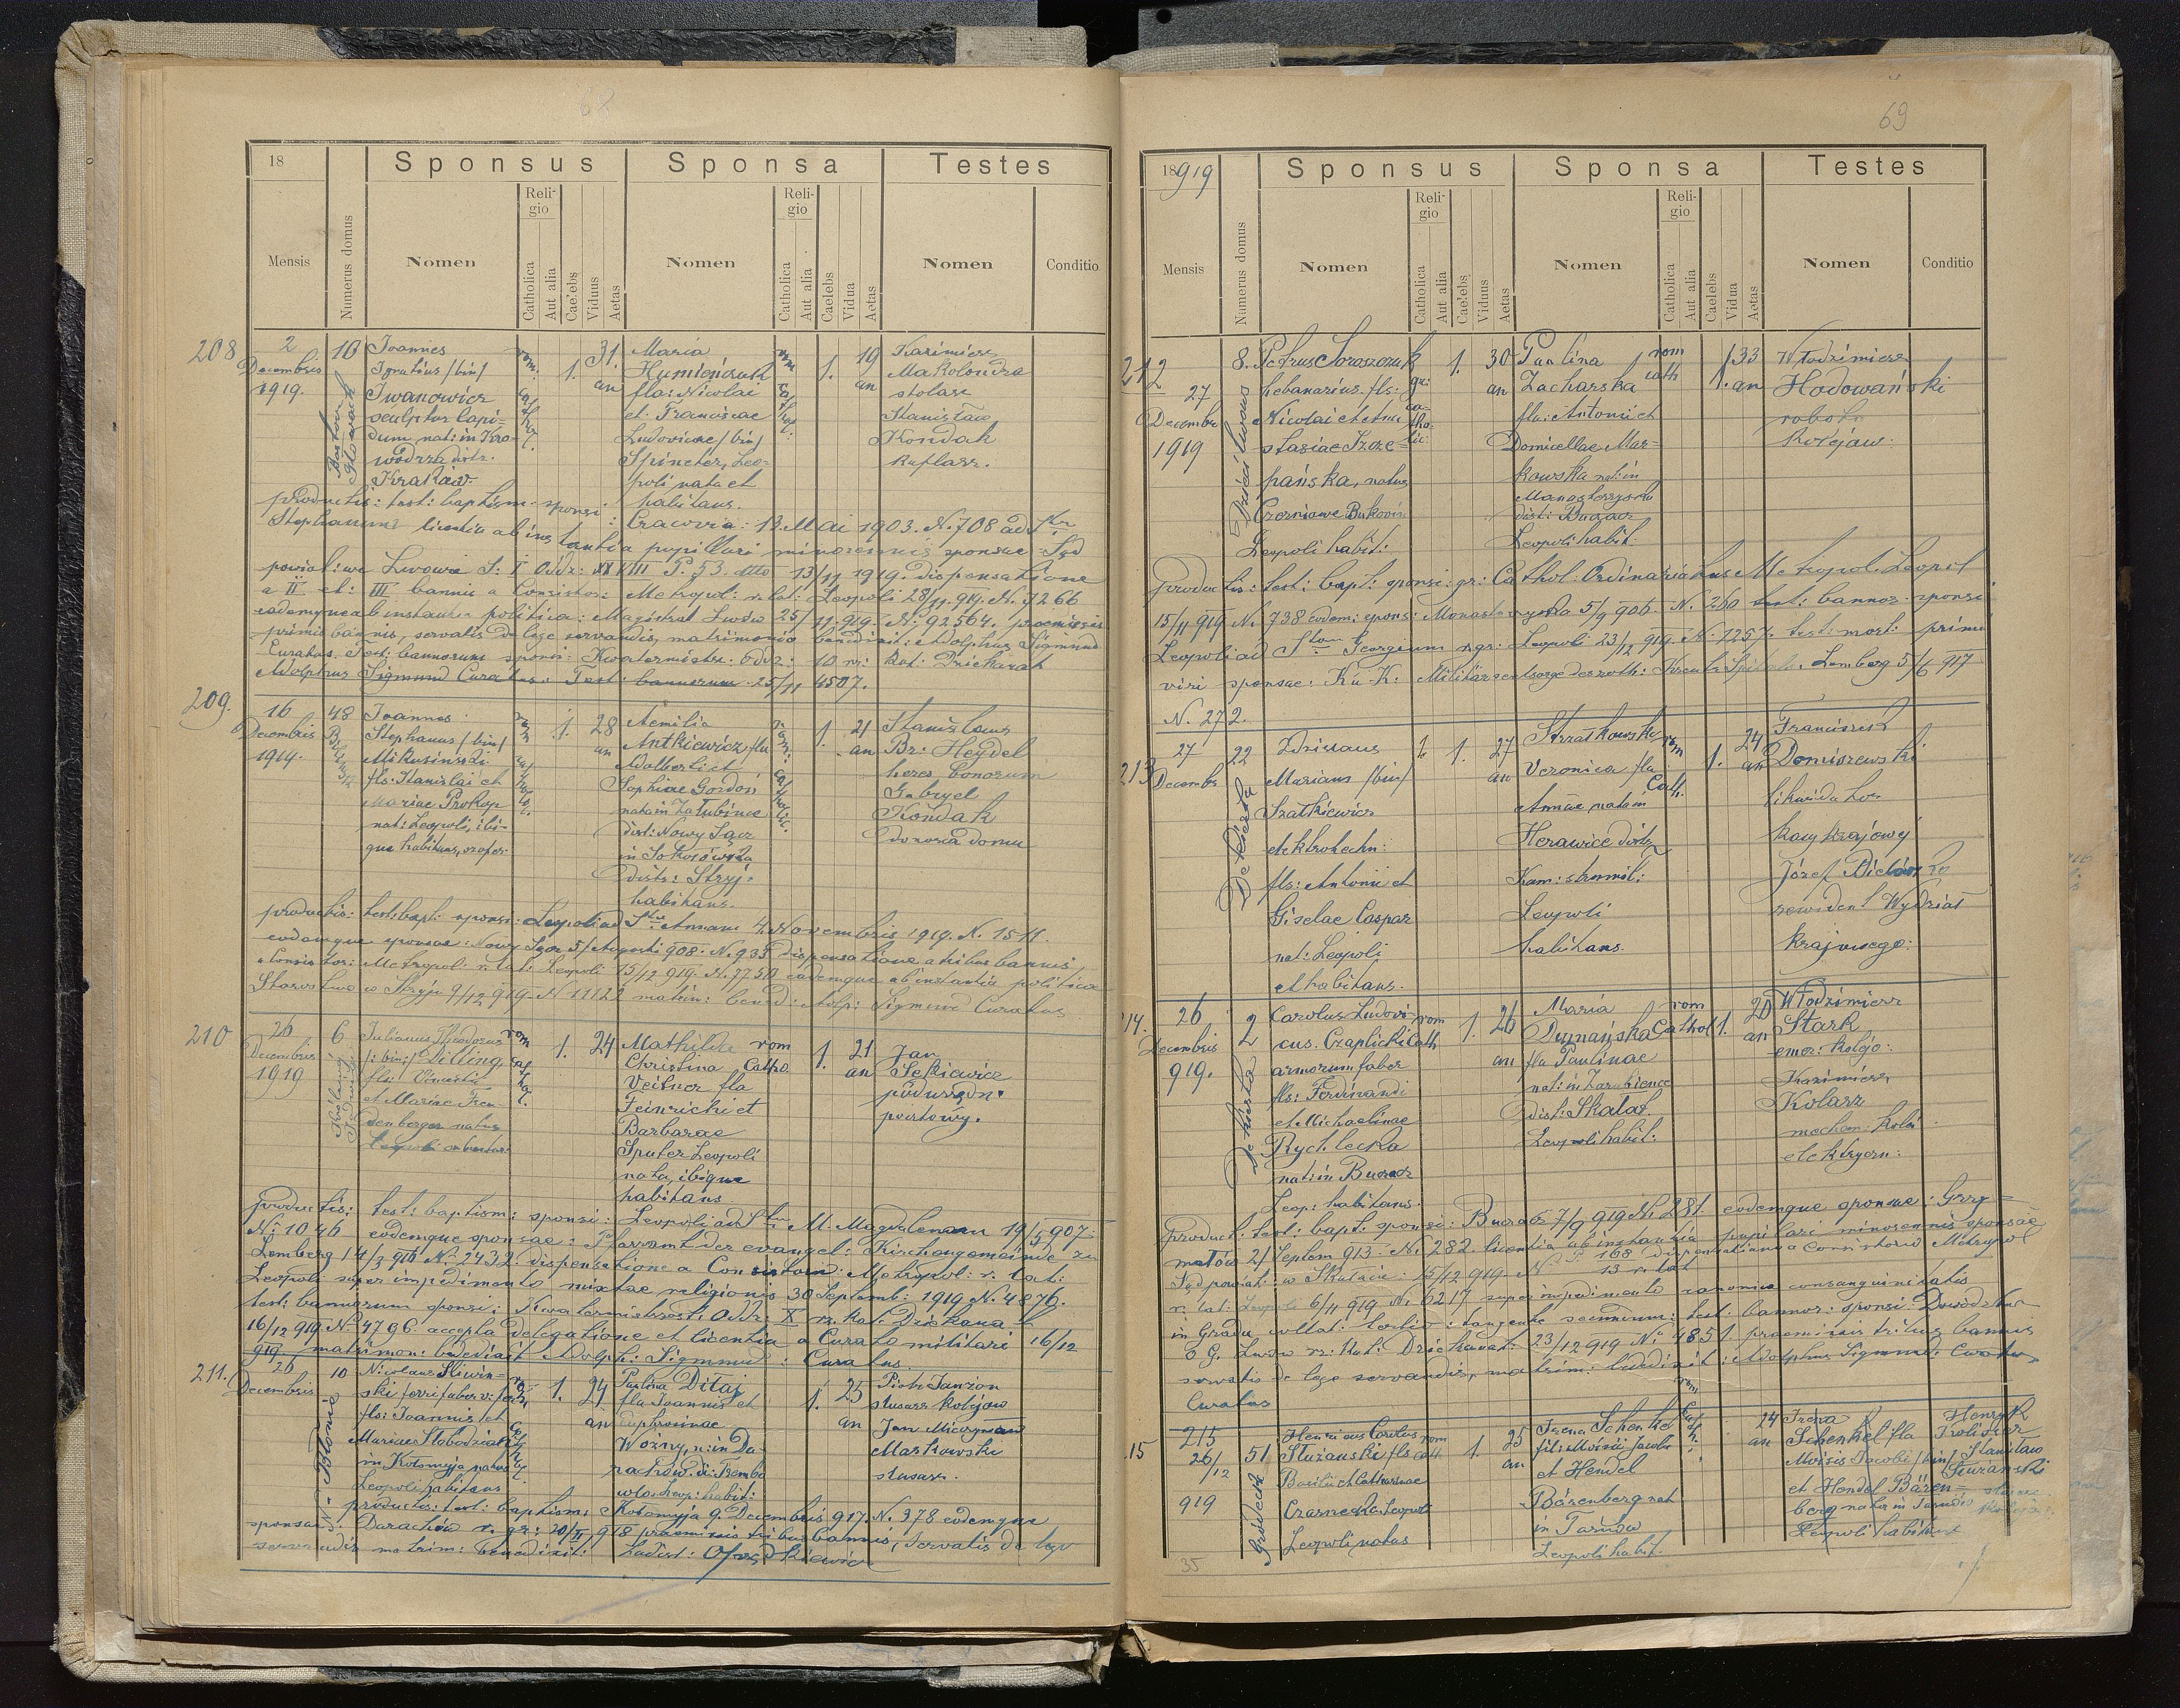 68
18
Sponsus
Sponsa
Testes
Mensis
Numerus domus
Nomen
Religio
Catholica
Aut alia
Caelebs
Viduus
Aetas
Nomen
Religio
Catholica
Aut alia
Caelebs
Vidua
Aetas
Nomen
Conditio
208
2
Decembris
1919.
10
Joannes
Ignatius /bin/
Iwanowicz
sculptor lapi=
dum nat: in Kro
wodrza distr.
Kraków
rom.
1.
31
an
Maria
Humieńczuk
fla: Nicolai
et Franciscae
Ludovicae /bin/
Spincter, Leo=
poli nata et
habitans.
rom
1.
19
an
Kazimierz
Makolondra
stolarz
Stanisław
Kondak
kaflarz.
productis: test: baptism. sponsi: Cracovia: 13. Mai 1903. N. 708 ad Stm
Stephanum licentia ab instantia pupillari minorennis sponsae Sąd
powiat: we Lwowie S: I Oddz: XXVIII P. 53. dtto 13/11 1919. dispensatione
a II et: III bannis a Consistor: Metropol: r. lat: Leopoli 28/11. 919. N. 7266
eademque ab instantia politica: Magistrat Lwów 25/11. 919. N: 92564. praemissis
primis bannis, servatis de lege servandis, matrimonio benedixit: Adolphus Sigmund
Curatus. Test: bannorum sponsi: Kwatermistr. Oddz: 10 rz: kat: Dziekanat
Adolphus Sigmund Curatus. Test: bannorum 25/11 4507.
209.
16
Decembris
1919.
48
Joannes
Stephanus /bin/
Mikusinski
fls: Stanislai et
Mariae Prokop
nat: Leopoli, ibi=
que habitans,
1.
28
an
Aemilia
Antkiewicz fla
Adalberti et
Sophiae Gordon
nata in Załubincze
dist: Nowy Sącz
in Sokołówka
distr: Stryj
habitans.
1.
21
an
Stanislaus
Br: Heydel
heres bonorum
Gabryel
Kondak
dozorca domu
productis: test: bapt: sponsi: Leopoli ad Stm Annam 4 Novembris 1919. N. 1511.
eodemque sponsae: Nowy Sącz 5/ Augusti 908. N. 933 dispensatione a tribus bannis
a Consistor: Metropol: r. lat: Leopoli 15/12 919. N. 7750 eademque ab instantia politica
Starostwo w Stryju 9/12 919. N 11122 matrim: bened: Adolp: Sigmund Curatus
210
26
Decembris
1919
6
Julianus Theodorus
/: bin:/ Dilling
fls: Vincentii
et Mariae Fren
denberger natus
Leopoli
rom
cat
1.
24
Mathilda
Christina
Veitner fla
Heinrichi et
Barbarae
Sputer Leopoli
nata, ibique
habitans
rom
Catho
1.
21
an
Jan
Sekiewicz
poduszędn.
poertowy.
productis: test: baptism: sponsi: Leopoli ad Stm M. Magdalenam 19/5 907
N: 1046 eodemque sponsae: Pfarramt der evangel: Kirchengemeinde zu
Lemberg 14/3 918 N: 2432. dispensatione a Consistorio: Metropol: r. lat:
Leopoli super impedimento mixtae religionis 30 Septemb: 1919 N. 4876.
test: bannorum sponsi: Kwatermistrzost. Oddz: X rz. kat: Dziekana
16/12 919 N: 4796. accepta delegatione et licentia a Curato militari 16/12
919 matrimon: benedixit Adolph: Sigmund: Curatus.
211.
26
Decembris
10
Nicolaus Sliwin=
ski ferri faber vi:
fls: Joannis et
Mariae Słobodzian
in Kołomyja natus
Leopoli habitans
1.
24
an
Paulina Ditaj
fla Joannis et
Euphrosinae
Woźny, n: in Da
rachów. di: Trembo
wla. Leop: habit:
1.
25
an
Piotr Janzon
slusarz kolejow
Jan
Markowski
slusarz.
productis: test: baptism: Kołomyja 9. Decembris 917. N. 378 eodemque
sponsae: Darachów r. gr: 20/II 918 praemissis tribus bannis, servatis de lege
servandis matrim: benedixit: Ladisl:
69
18919
Sponsus
Sponsa
Testes
Mensis
Numerus domus
Nomen
Religio
Catholica
Aut alia
Caelebs
Viduus
Aetas
Nomen
Religio
Catholica
Aut alia
Caelebs
Vidua
Aetas
Nomen
Conditio
212
27
Decembr
1919
8.
Petrus Soroszczuk
hebanarius. fls:
Nicolai et Ana
stasiae Szcze=
pańska, natus
Czerniowe Bukovin
Leopoli habit:
gr:
ca
tho
lic
1.
30
an
Paulina
Zacharska
fla: Antoni et
Domicellae Mar=
kowska nat: in
Manasterzyska
dist: Buczacz
Leopoli habit.
rom
cath
1.
33
an
Włodzimierz
Hodowański
robotn
kolejow:
Productis: test: bapt: sponsi: gr: Cathol: Ordinariatus Metropol. Leopol
15/11 919 N. 738 eodem: spons: Monasterzyska 5/9 906. N. 260 test: bannor. sponsi
Leopoli ad Stum Georgium r. gr: Leopoli 23/12 919. N. 1257. test: mort: primi
viri sponsae: K: u: K: Militärseelsorge des roth: Kreuh Spitals. Lemberg 5/6 917
N. 272.
213
27
Decembr
22
Zdzislaus
Marianus /bin/
Szatkiewicz
elektrotechn:
fls: Antoni et
Giselae Caspar
nat: Leopoli
et habitans.
1.
27
an
Strzatkowska
Veronica fla
Annae nata in
Herawice distr
Kam: strumil:
Leopoli
habitans.
rom
Cath.
1.
24
an
Franciszek
Domiszewski
likwidator
kasy krajowej
Józef
rewident Wydział
krajowego:
14.
26
Decembris
919.
2
Carolus Ludovi
cus. Czaplicki
armorum faber
fls: Ferdinandi
et Michaelinae
Rychlecka
nat: in Buczacz
Leop: habitans.
rom
Cath
1.
26
an
Maria
Dymańska
fla Paulinae
nat: in Zarubience
dist: Skałat.
Leopoli habit:
rom
Cathol
1.
20
an
Włodzimierz
Stark
emer: kolejo:
Kazimierz
Kolarz
mechan: kolei
elektrycz:
Product: test: bapt: sponsi: Buczacz 7/9 919 N. 281. eodemque sponsae: Grzy=
małów 2/ Septem 913. N: 282. licentia ab instantia pupillari minorennis sponsae
Sąd powiat: w Skałacie: 15/12 919. N 168/13 dispensatione a Consistorio Metropol
r. lat: Leopoli 6/11 919. N. 6217 super impedimento canonico consanguinitatis
in Gradu collat: tertio: tangente secundum: test: bannor: sponsi: Dowództwo
O G. Lwów rz: Kat: Dziekanat: 23/12 919 N: 4851 praemissis tribus bannis
servatis de lege servandis, matrim: benedixit: Adolphus Sigmund: Curatus
Curatus
15
215
26/12
919
51
Henricus Carolus
Stużanski fls
Basilii et Catharinae
Czarnecka Leopoli
Leopoli natus
rom
cath
1.
25
an
Irena Schenkel
fil: Moisii Jacobi
et Hendel
Bärenberg nat
in Tarnów
Leopoli habit.
24
an
Irena
Schenkel fla
Moisis Jacobi /bin/
et Hendel Bären=
berg nata in Tarnów
Leopoli habitans
Henryk
Stanisław
Stużanski
35